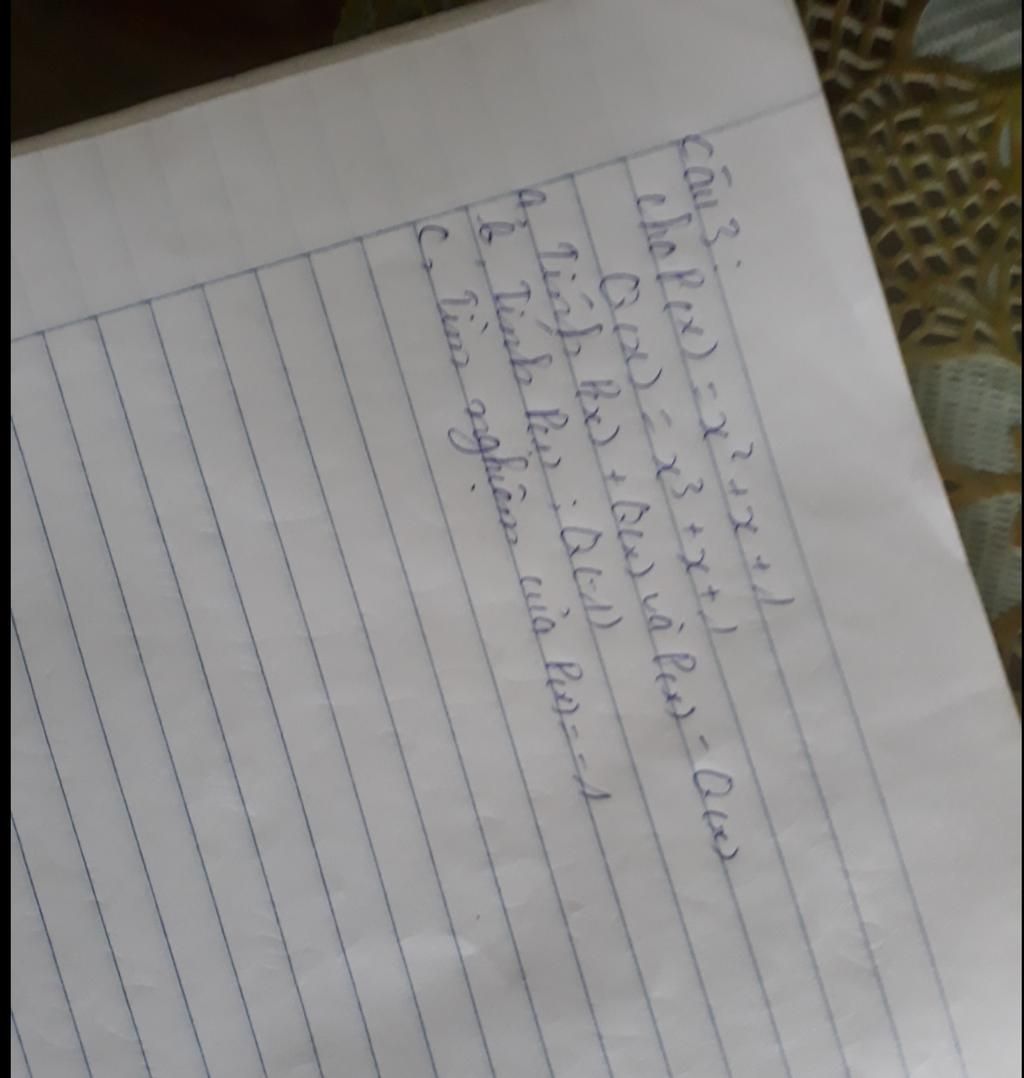 Câu 3.
cho P(x) = x² + x + 1
Q(x) = x³ + x + 1
a, Tính P(x) + Q(x) và P(x) - Q(x)
b, Tính P(1) ; Q(-1)
c, Tìm nghiệm của P(x) = -1